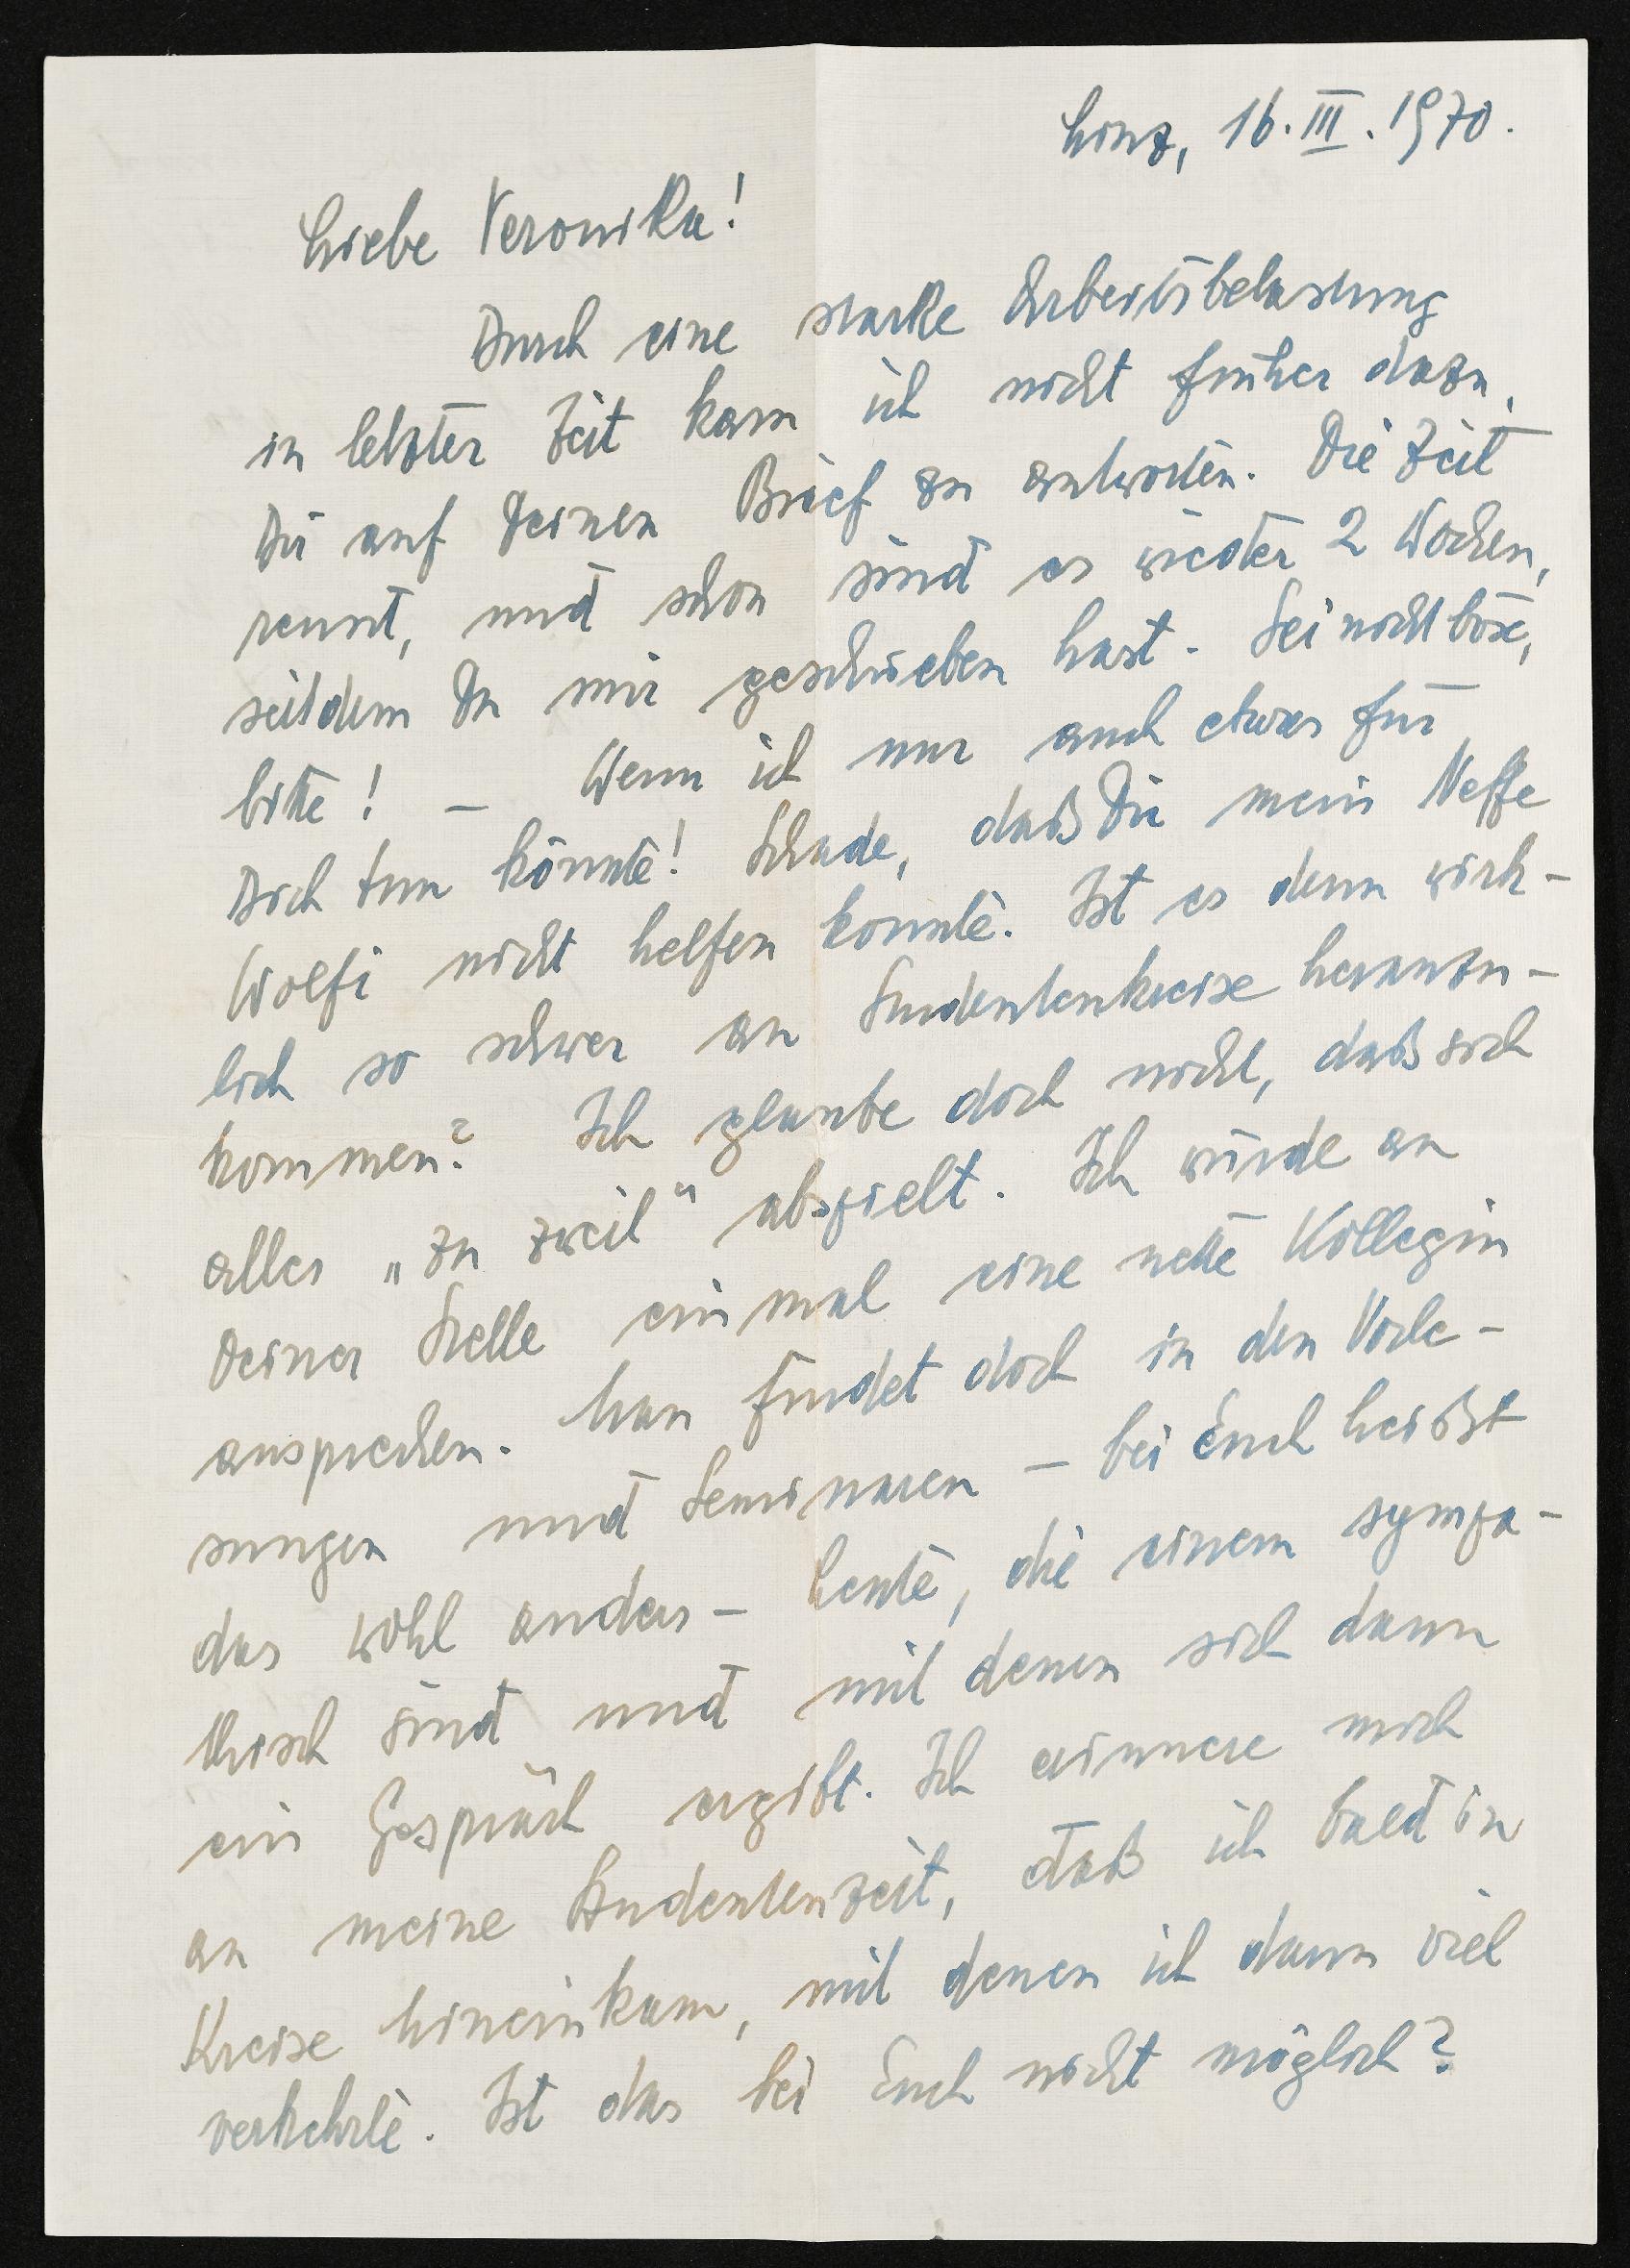 Linz, 16. III. 1970.
Liebe Veronika!
Durch eine starke Arbeitsbelastung
in letzter Zeit kam ich nicht früher dazu,
Dir auf Deinen Brief zu antworten. Die Zeit
rennt, und schon sind es wieder 2 Wochen,
seitdem Du mir geschrieben hast. Sei nicht böse,
bitte! – Wenn ich nur auch etwas für
Dich tun könnte! Schade, daß Dir mein Neffe
Wolfi nicht helfen konnte. Ist es denn wirk-
lich so schwer an Studentenkreise heranzu-
kommen? Ich glaube doch nicht, daß sich
alles „zu zweit" abspielt. Ich würde an
Deiner Stelle einmal eine nette Kollegin
ansprechen. Man findet doch in den Vorle-
sungen und Seminaren – bei Euch heißt
das wohl anders – Leute, die einem sympa-
thisch sind und mit denen sich dann
ein Gespräch ergibt. Ich erinnere mich
an meine Studentenzeit, daß ich bald in
Kreise hineinkam, mit denen ich dann viel
verkehrte. Ist das bei Euch nicht möglich?